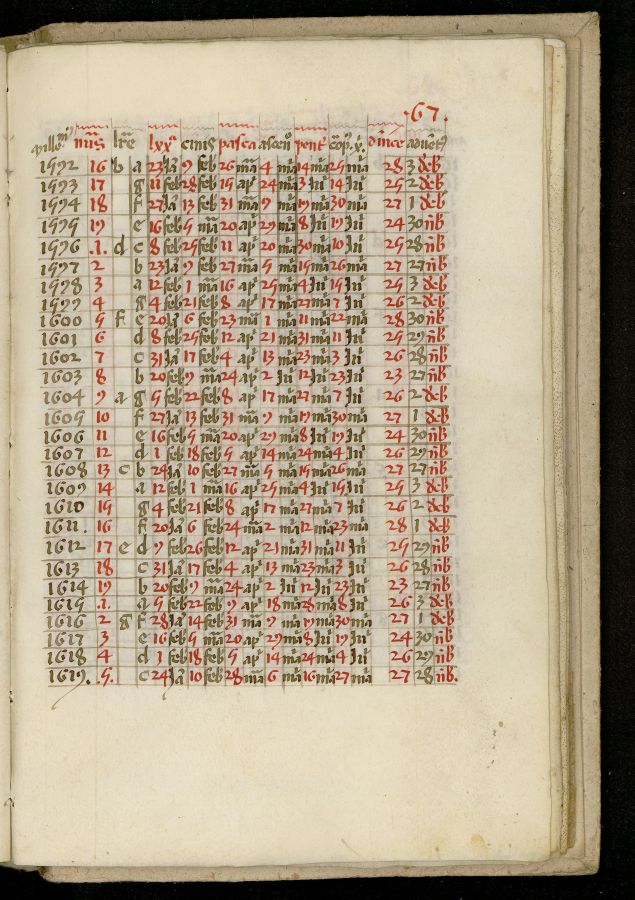 .67.
mille^mi nu̅s lr̅e lxx^a cinis pasca asce̅n pent̅ co̅p̅. x̅. dince adue̅t
1592 16 b a 23 Ja 9 feb 26 ma 4 ma 14 ma 25 ma 28 3 deb
1593 17 g 11 feb 28 feb 15 ap 24 ma 3 Ju 14 Ju 25 2 deb
1594 18 f 27 Ja 13 feb 31 ma 9 ma 19 ma 30 ma 27 1 deb
1595 19 e 16 feb 5 ma 20 ap 29 ma 8 Ju 19 Ju 24 30 nb
1596 .1. d c 8 feb 25 feb 11 ap 20 ma 30 ma 10 Ju 25 28 nb
1597 2 b 23 Ja 9 feb 27 ma 5 ma 15 ma 26 ma 27 27 nb
1598 3 a 12 feb 1 ma 16 ap 25 ma 4 Ju 15 Ju 25 3 deb
1599 4 g 4 feb 21 feb 8 ap 17 ma 27 ma 7 Ju 26 2 deb
1600 5 f e 20 Ja 6 feb 23 ma 1 ma 11 ma 22 ma 28 30 nb
1601 6 d 8 feb 25 feb 12 ap 21 ma 31 ma 11 Ju 25 29 nb
1602 7 c 31 Ja 17 feb 4 ap 13 ma 23 ma 3 Ju 26 28 nb
1603 8 b 20 feb 9 ma 24 ap 2 Ju 12 Ju 23 Ju 23 27 nb
1604 9 a g 5 feb 22 feb 8 ap 17 ma 27 ma 7 Ju 26 2 deb
1605 10 f 27 Ja 13 feb 31 ma 9 ma 19 ma 30 ma 27 1 deb
1606 11 e 16 feb 5 ma 20 ap 29 ma 8 Ju 19 Ju 24 30 nb
1607 12 d 1 feb 18 feb 5 ap 14 ma 24 ma 4 Ju 26 29 nb
1608 13 c b 24 Ja 10 feb 27 ma 5 ma 15 ma 26 ma 27 27 nb
1609 14 a 12 feb 1 ma 16 ap 25 ma 4 Ju 15 Ju 25 3 deb
1610 15 g 4 feb 21 feb 8 ap 17 ma 27 ma 7 Ju 26 2 deb
1611. 16 f 20 Ja 6 feb 24 ma 2 ma 12 ma 23 ma 28 1 deb
1612 17 e d 9 feb 26 feb 12 ap 21 ma 31 ma 11 Ju 25 29 nb
1613 18 c 31 Ja 17 feb 4 ap 13 ma 23 ma 3 Ju 26 28 nb
1614 19 b 20 feb 9 ma 24 ap 2 Ju 12 Ju 23 Ju 23 27 nb
1615 .1. a 5 feb 22 feb 9 ap 18 ma 28 ma 8 Ju 26 3 deb
1616 2 g f 28 Ja 14 feb 31 ma 9 ma 19 ma 30 ma 27 1 deb
1617 3 e 16 feb 5 ma 20 ap 29 ma 8 Ju 19 Ju 24 30 nb
1618 4 d 1 feb 18 feb 5 ap 14 ma 24 ma 4 Ju 26 29 nb
1619. .5. c 24 Ja 10 feb 28 ma 6 ma 16 ma 27 ma 27 28 nb.